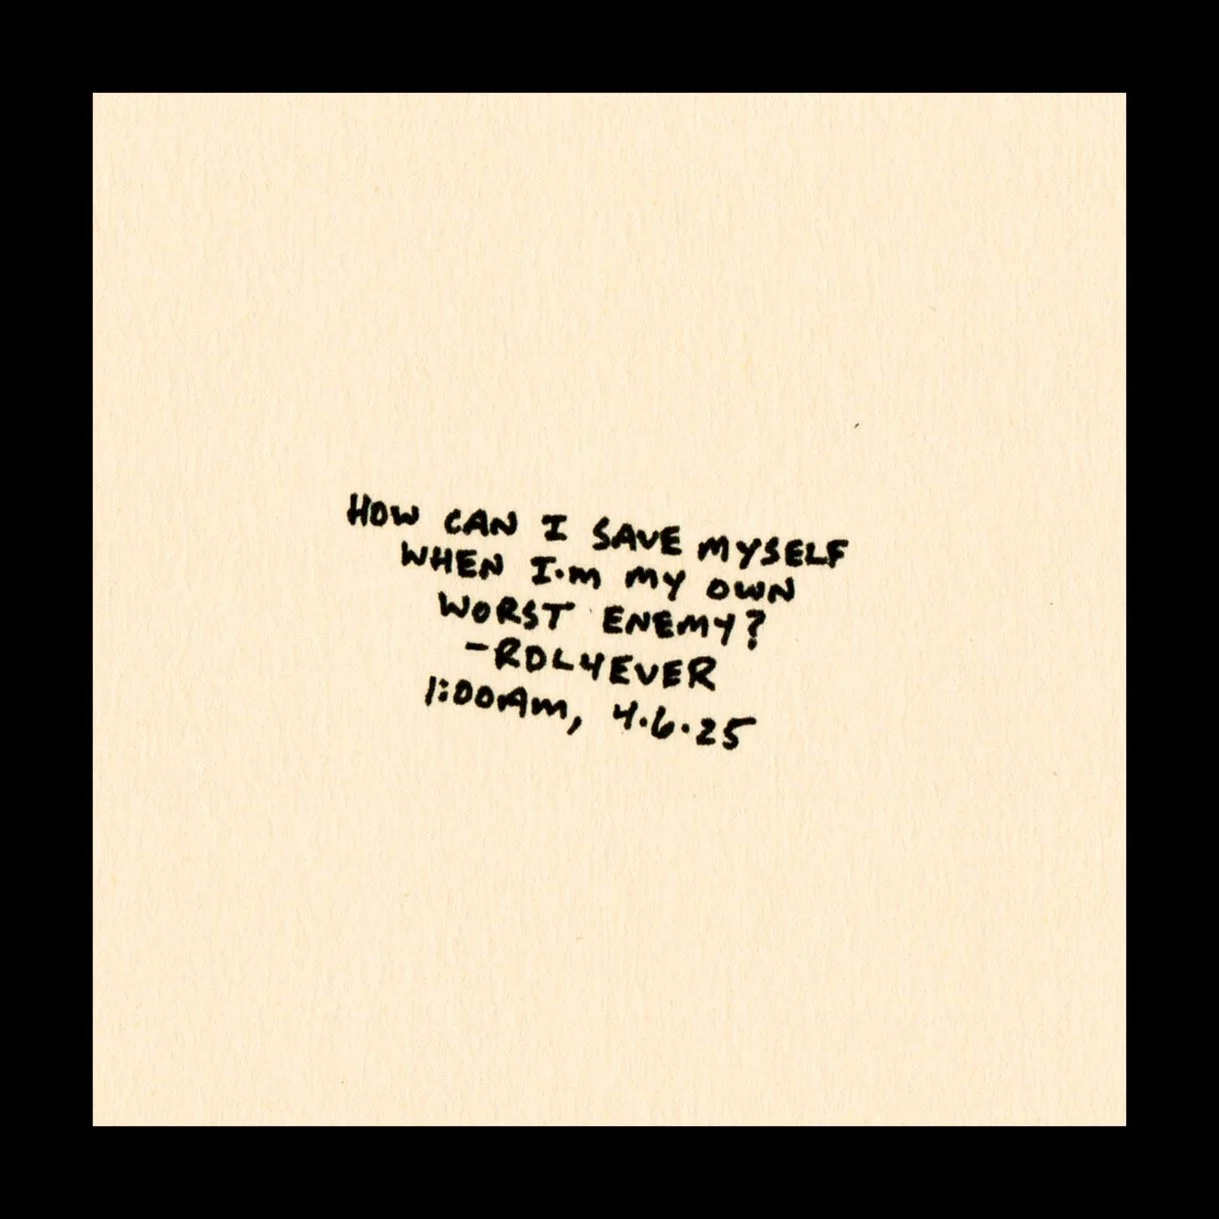 HOW CAN I SAVE MYSELF
WHEN I·M MY OWN
WORST ENEMY?
-RDL4EVER
1:00AM, 4.6.25